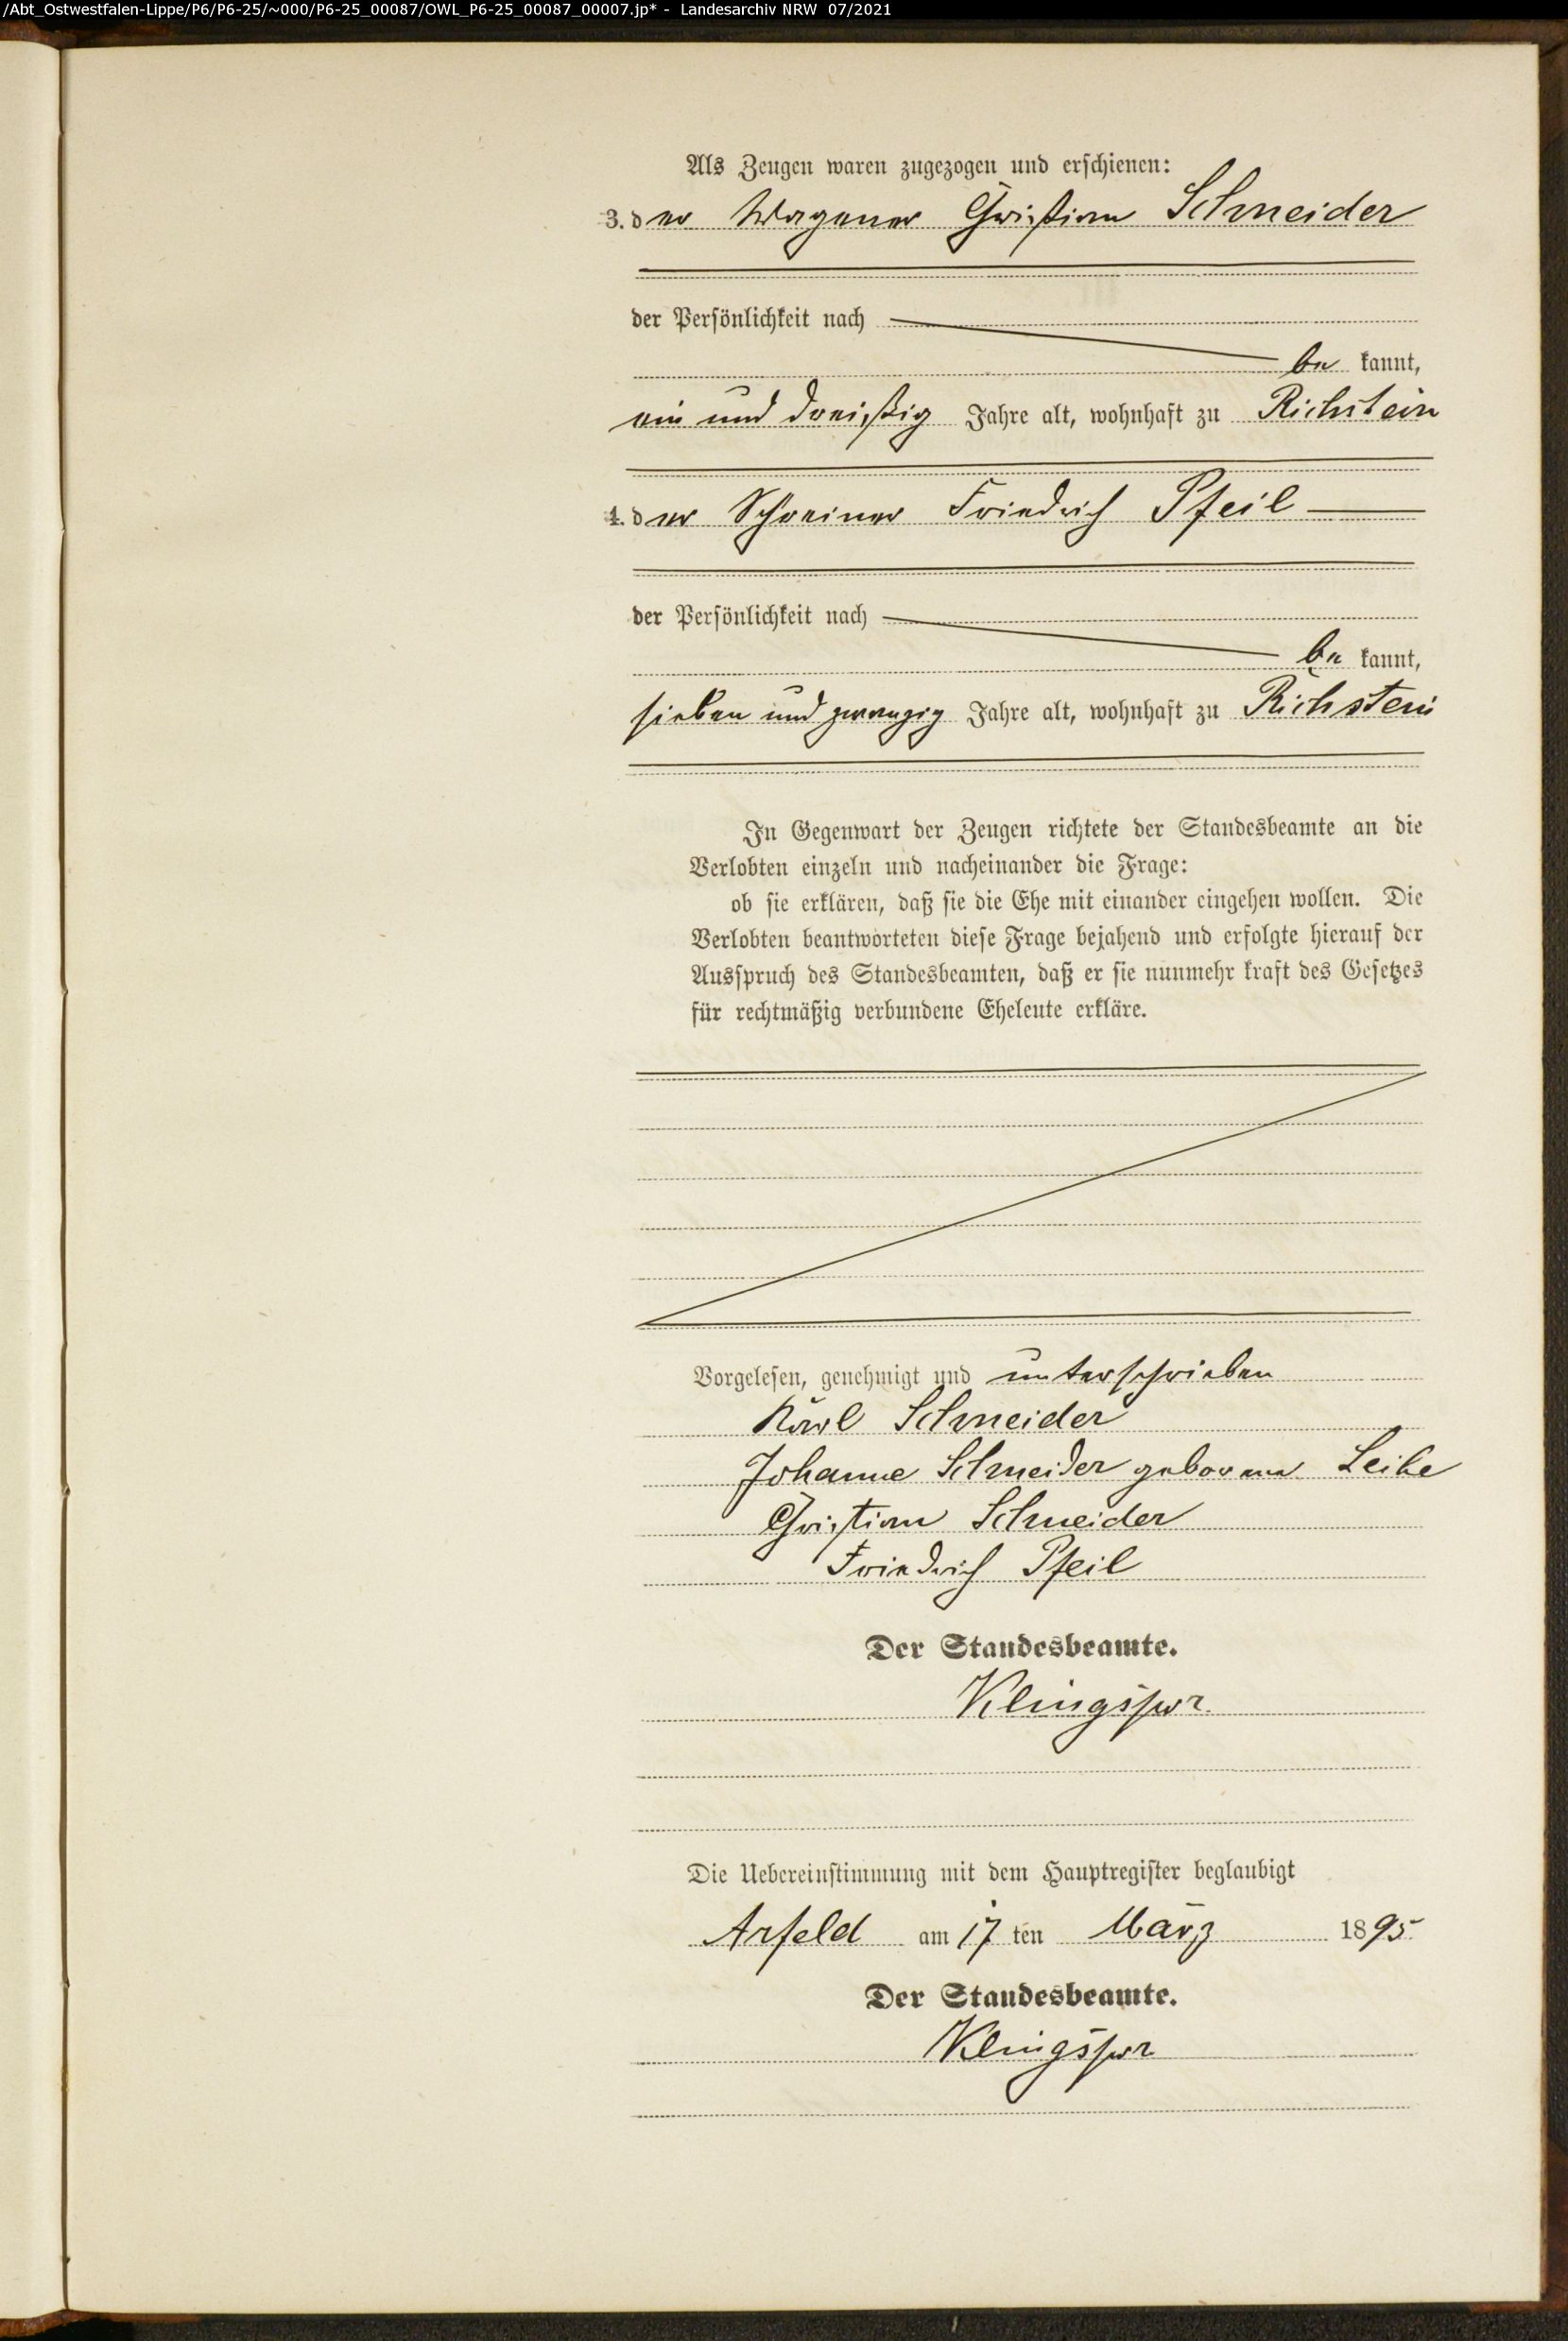 /Abt_Ostwestfalen-Lippe/P6/P6-25/~000/P6-25_00087/OWL_P6-25_00087_00007.jp* - Landesarchiv NRW 07/2021
Als Zeugen waren zugezogen und erschienen:
3. der Wagener Christian Schneider
der Persönlichkeit nach
be kannt,
ein und dreißig Jahre alt, wohnhaft zu Richstein
4. der Schreiner Friedrich Pfeil
der Persönlichkeit nach
be kannt,
sieben und zwanzig Jahre alt, wohnhaft zu Richstein
In Gegenwart der Zeugen richtete der Standesbeamte an die
Verlobten einzeln und nacheinander die Frage:
ob sie erklären, daß sie die Ehe mit einander eingehen wollen. Die
Verlobten beantworteten diese Frage bejahend und erfolgte hierauf der
Ausspruch des Standesbeamten, daß er sie nunmehr kraft des Gesetzes
für rechtmäßig verbundene Eheleute erkläre.
Vorgelesen, genehmigt und unterschrieben
Karl Schneider
Johanne Schneider geborene
Christian Schneider
Friedrich Pfeil
Der Standesbeamte.
Klingspor
Die Uebereinstimmung mit dem Hauptregister beglaubigt
Arfeld am 17 ten März 1895
Der Standesbeamte.
Klingspor